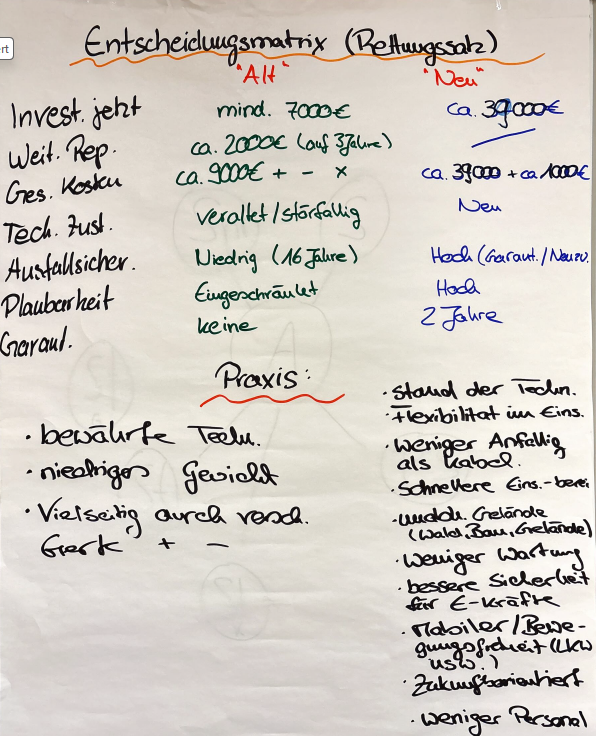 ert
Entscheidungsmatrix (Rettungssatz)
"Alt" "Neu"
Invest. jetzt mind. 7000€ ca. 39000€
Weit. Rep. ca. 2000€ (auf 3 Jahre)
Ges. Kosten ca. 9000€ + - x ca. 39000 + ca 1000€
Tech. Zust. veraltet/störfällig Neu
Ausfallsicher. Niedrig (16 Jahre) Hoch (Garant./Neuzu.
Planbarkeit Eingeschränkt Hoch
Garant. keine 2 Jahre
Praxis:
· bewährte Tech.
· niedriges Gewicht
· Vielseitig durch versch.
Gerät + -
· Stand der Techn.
· Flexibilität im Eins.
· Weniger Anfällig
als Kabel.
· Schnellere Eins.-berei
Gelände
(Wald, Bau, Gelände)
· Weniger Wartung
· bessere Sicherheit
für E-Kräfte
· Mobiler/Bewe-
gungsfreiheit (LKW
usw.)
· Zukunftsorientiert
· weniger Personal